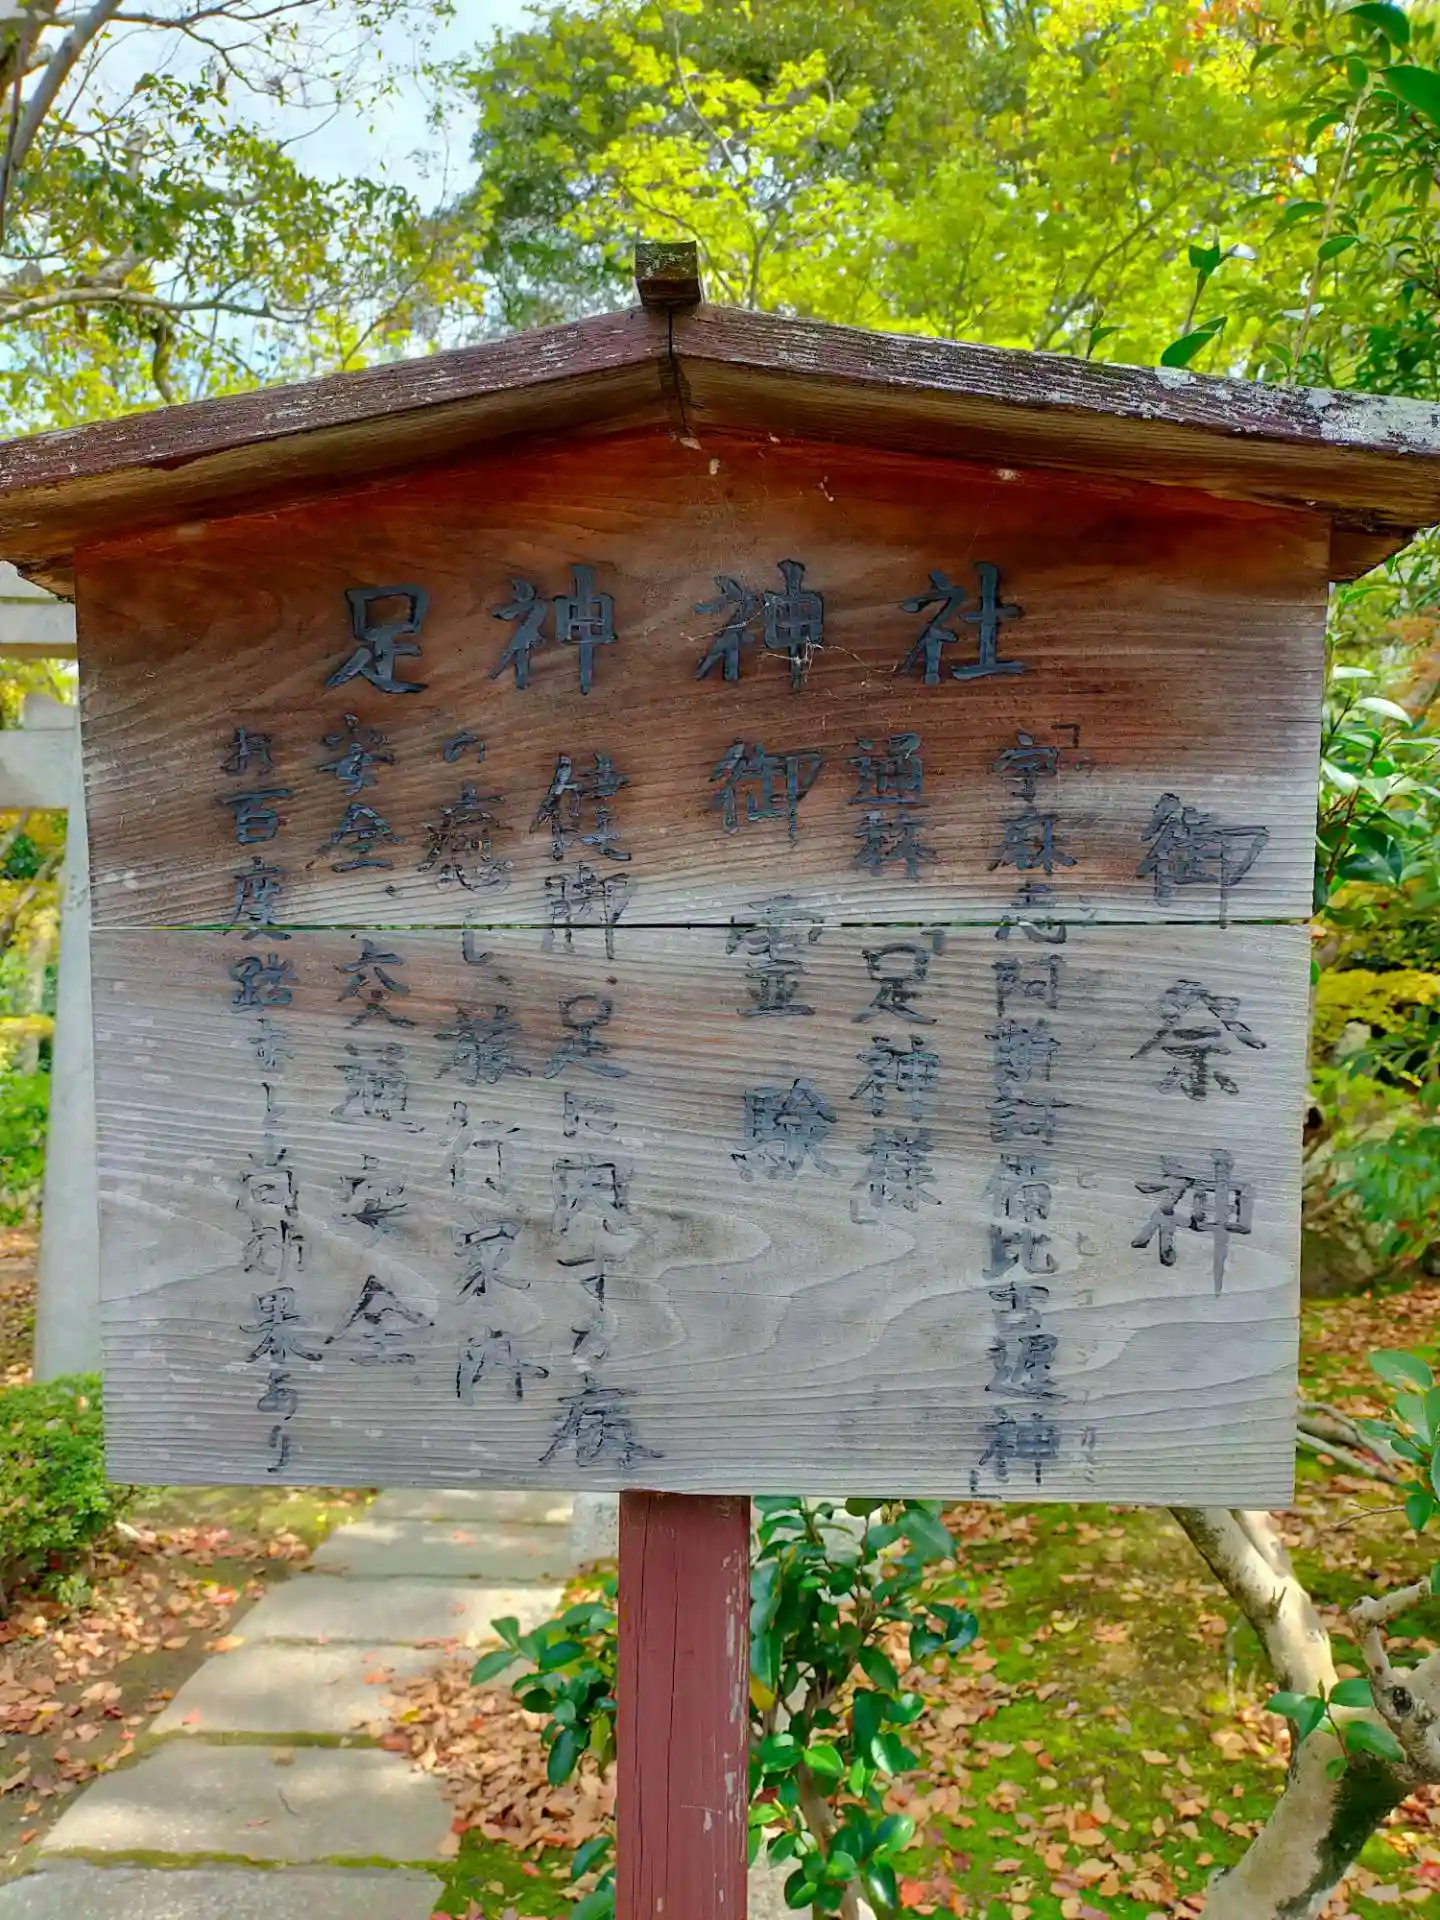 足神神社
御祭神
「宇麻志阿斯訶備比古遅神」
通称「足神様」
御霊験
健脚、足に関する病
の癒し、旅行家内
安全、交通安全
お百度踏むと尚効果あり